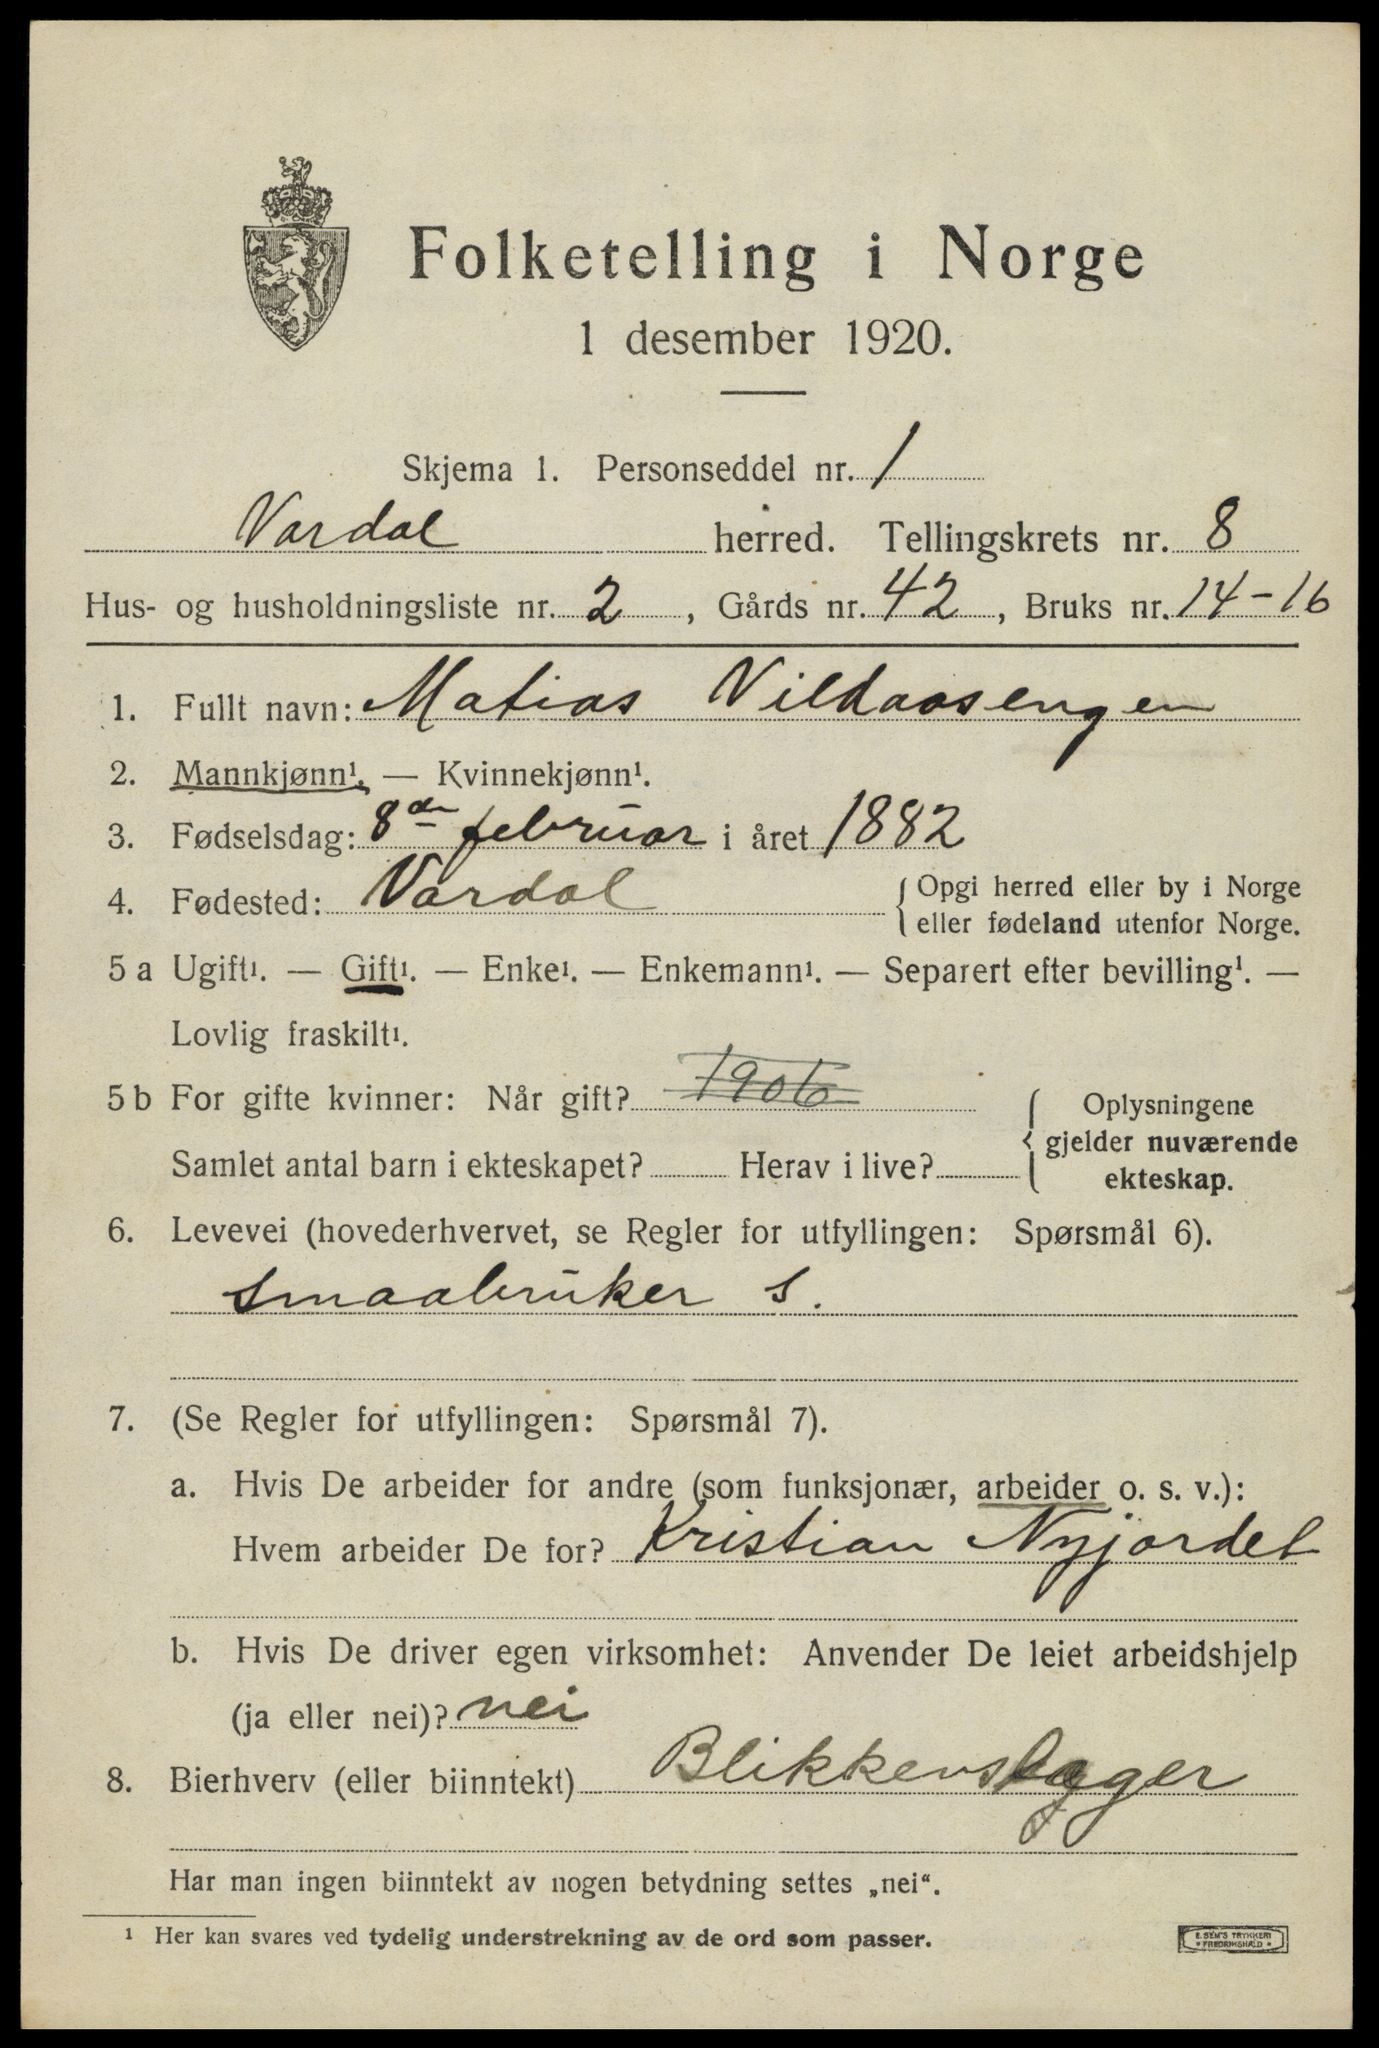 Folketelling i Norge
1 desember 1920.
Skjema 1. Personseddel nr. 1
Vardal herred. Tellingskrets nr. 8
Hus- og husholdningsliste nr. 2, Gårds nr. 42, Bruks nr. 14-16
1. Fullt navn: Matias Vildaasengen
2. Mannkjønn¹. — Kvinnekjønn¹.
3. Fødselsdag: 8de februar i året 1882
4. Fødested: Vardal { Opgi herred eller by i Norge
eller fødeland utenfor Norge.
5 a Ugift¹. — Gift¹. — Enke¹. — Enkemann¹. — Separert efter bevilling¹. —
Lovlig fraskilt¹.
5 b For gifte kvinner: Når gift? 1906
Samlet antal barn i ekteskapet? Herav i live?
{ Oplysningene
gjelder nuværende
ekteskap.
6. Levevei (hovederhvervet, se Regler for utfyllingen: Spørsmål 6).
smaabruker s.
7. (Se Regler for utfyllingen: Spørsmål 7).
a. Hvis De arbeider for andre (som funksjonær, arbeider o. s. v.):
Hvem arbeider De for? Kristian Nyjordet
b. Hvis De driver egen virksomhet: Anvender De leiet arbeidshjelp
(ja eller nei)? nei
8. Bierhverv (eller biinntekt) Blikkenslager
Har man ingen biinntekt av nogen betydning settes „nei“.
¹ Her kan svares ved tydelig understrekning av de ord som passer.
E. SEM'S TRYKKERI
* FREDRIKSHALD *